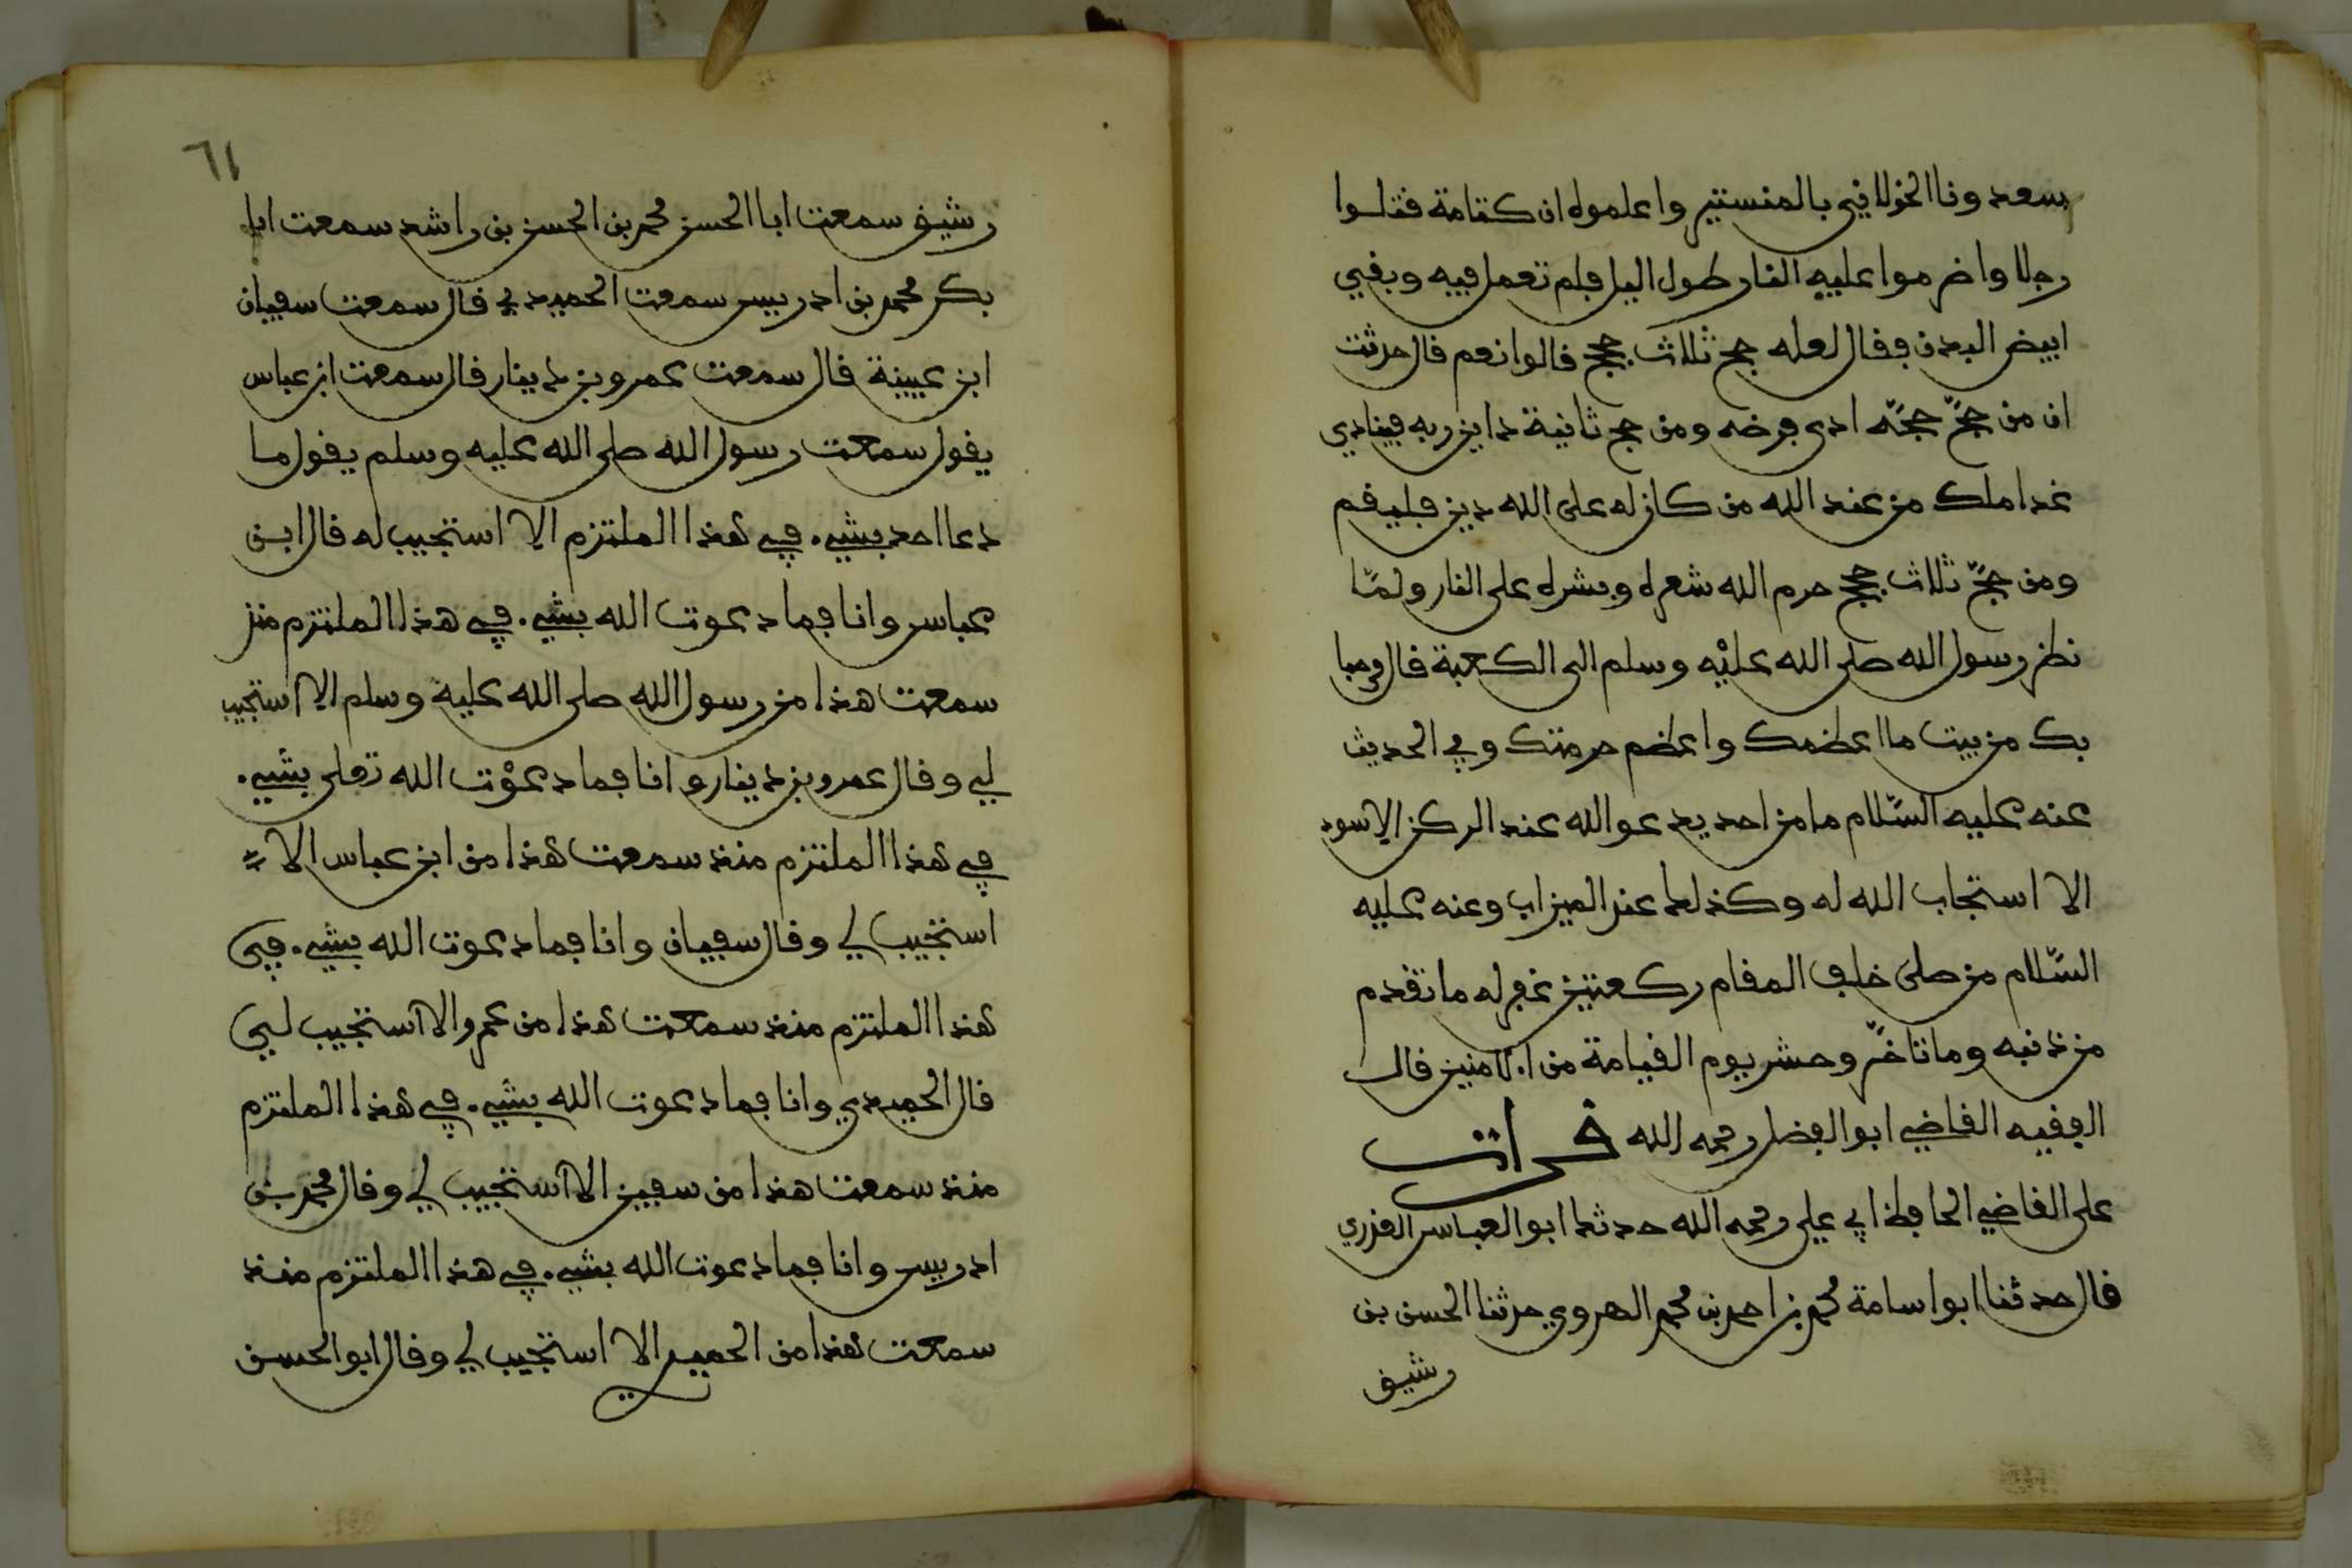 سعدونا الخولاني بالمنستير واعلموه ان كتامة قتلوا
رجلا واضرموا عليه النار طول اليل فلم تعمل فيه وبقي
ابيض البدن فقال لعله حج ثلاث حجج قالوا نعم قال حدثت
ان من حجّ حجّة ادى فرضه ومن حج ثانية داين ربه فينادي
غدا ملك من عند الله من كان له على الله دين فليقم
ومن حجّ ثلاث حجج حرم الله شعره وبشره على النار ولمّا
نظر رسول الله صلى الله عليْه وسلم الى الكعبة قال مرحبا
بك من بيت ما اعظمك واعظم حرمتك وفي الحديث
عنه عليه السّلام ما من احد يدعو الله عند الركن الاسود
الا استجاب الله له وكذلك عند الميزاب وعنه عليه
السّلام من صلى خلف المقام ركعتين غفر له ما تقدم
من ذنبه وما تاخّر وحشر يوم القيامة من الامنين قال
الفقيه القاضي ابو الفضل رحمه الله قرات
على القاضي الحافظ ابي علي رحمه الله حدثك ابو العباس العذري
قال حدثنا ابو اسامة محمد بن احمد بن محمد الهروي حدثنا الحسن بن
رشيق
٦١
رشيق سمعت ابا الحسن محمد بن الحسن بن راشد سمعت ابا
بكر محمد بن ادريس سمعت الحميدي قال سمعت سفيان
ابن عيينة قال سمعت عمرو بن دينار قال سمعت ابن عباس
يقول سمعت رسول الله صلى الله عليه وسلم يقول ما
دعا احد بشيء في هذا الملتزم الا استجيب له قال ابن
عباس وانا فما دعوت الله بشيء في هذا الملتزم منذ
سمعت هذا من رسول الله صلى الله عليه وسلم الا استجيب
لي وقال عمرو بن دينار وانا فما دعوْت الله تعلى بشيء
في هذا الملتزم منذ سمعت هذا من ابن عباس الا
استجيب لي وقال سفيان وانا فما دعوت الله بشيء في
هذا الملتزم منذ سمعت هذا من عمرو الا استجيب لي
قال الحميدي وانا فما دعوت الله بشيء في هذا الملتزم
منذ سمعت هذا من سفين الا استجيب لي وقال محمد بن
ادريس وانا فما دعوت الله بشيء في هذا الملتزم منذ
سمعت هذا من الحميدي الا استجيب لي وقال ابو الحسن